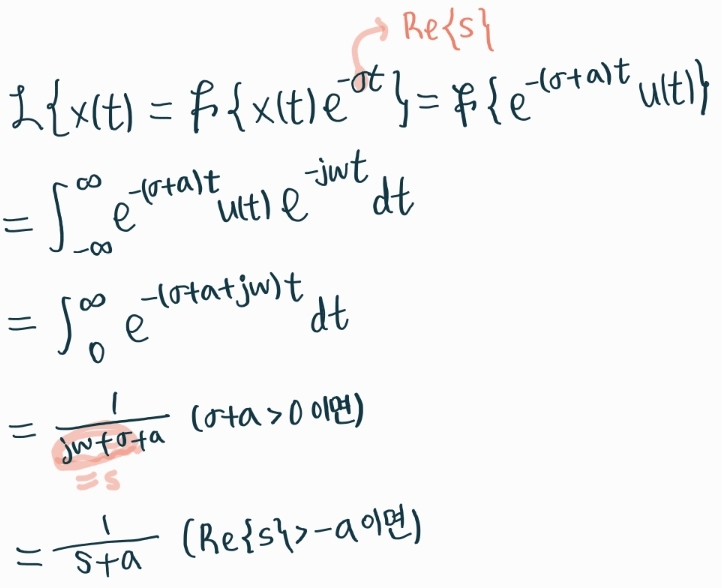 Re{s}
ℒ{x(t) = ℱ{x(t)e^{-σt}} = ℱ{e^{-(σ+a)t} u(t)}
= ∫_{-∞}^{∞} e^{-(σ+a)t} u(t) e^{-jωt} dt
= ∫_0^∞ e^{-(σ+a+jω)t} dt
= 1/(jω+σ+a) (σ+a>0 이면)
=s
= 1/(s+a) (Re{s}>-a 이면)